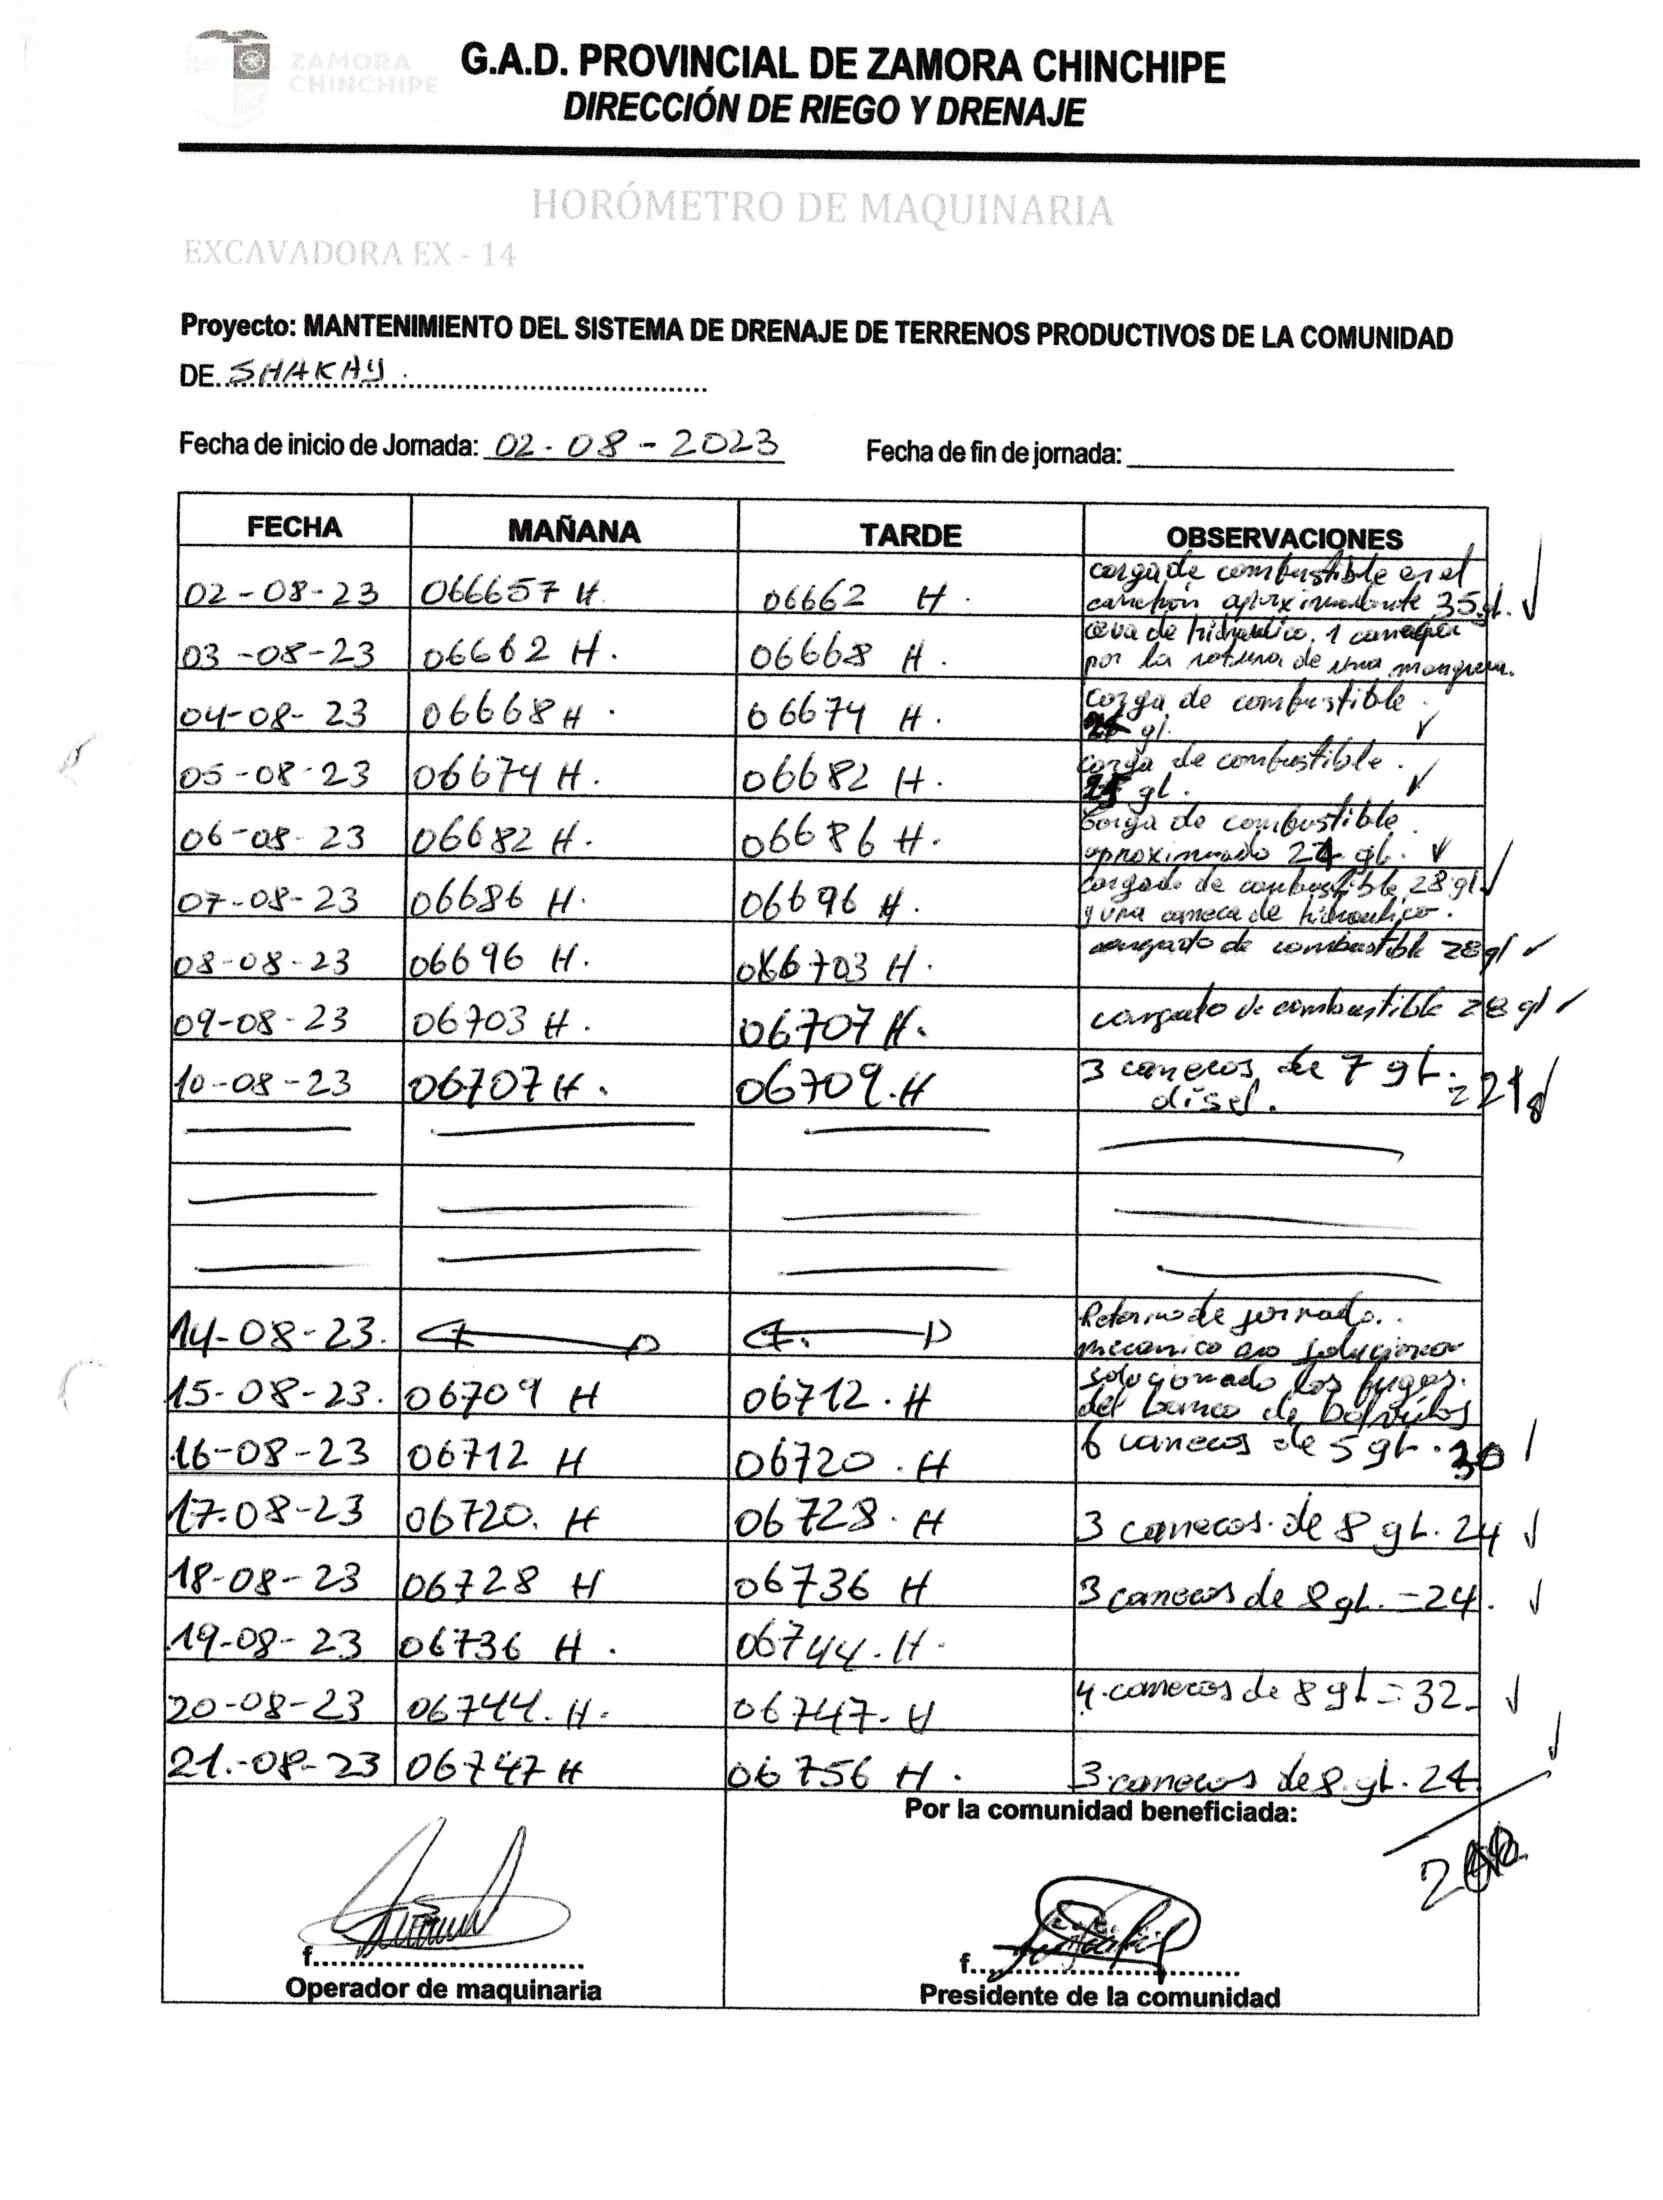 ZAMORA
CHINCHIPE
G.A.D. PROVINCIAL DE ZAMORA CHINCHIPE
DIRECCIÓN DE RIEGO Y DRENAJE
HORÓMETRO DE MAQUINARIA
EXCAVADORA EX - 14
Proyecto: MANTENIMIENTO DEL SISTEMA DE DRENAJE DE TERRENOS PRODUCTIVOS DE LA COMUNIDAD
DE. SHAKAY.
Fecha de inicio de Jornada: 02-08-2023 Fecha de fin de jornada:
FECHA MAÑANA TARDE OBSERVACIONES
02-08-23 066657 H. 06662 H. carga de combustible en el
canchón aproximadamente 35 gl.
03-08-23 06662 H. 06668 H. de hidraulico. 1 caneca
por la rotura de una manguera.
04-08-23 06668 H. 06674 H. carga de combustible.
gl.
05-08-23 06674 H. 06682 H. carga de combustible.
gl.
06-08-23 06682 H. 06686 H. carga de combustible
aproximado gl.
07-08-23 06686 H. 06696 H. cargado de combustible 28 gl
y una caneca de hidraulico.
08-08-23 06696 H. 06703 H. cargado de combustible 28 gl
09-08-23 06703 H. 06707 H. cargado de combustible 28 gl
10-08-23 06707 H. 06709.H 3 canecos de 7 gL. = 21
disel.
14-08-23. Retorno de jornada.
mecanico solucionar
15-08-23. 06709 H 06712.H solucionado las fugas.
del banco de
16-08-23 06712 H 06720.H 6 canecos de 5 gL. 30
17-08-23 06720. H 06728. H 3 canecos de 8 gL. 24
18-08-23 06728 H 06736 H 3 canecos de 8 gL. = 24.
19-08-23 06736 H. 06744.H.
20-08-23 06744. H. 06747. H 4 canecos de 8 gL = 32
21.-08-23 06747 H 06756 H. 3 canecos de 8 gL. 24
Por la comunidad beneficiada:
f.
Operador de maquinaria
f.
Presidente de la comunidad